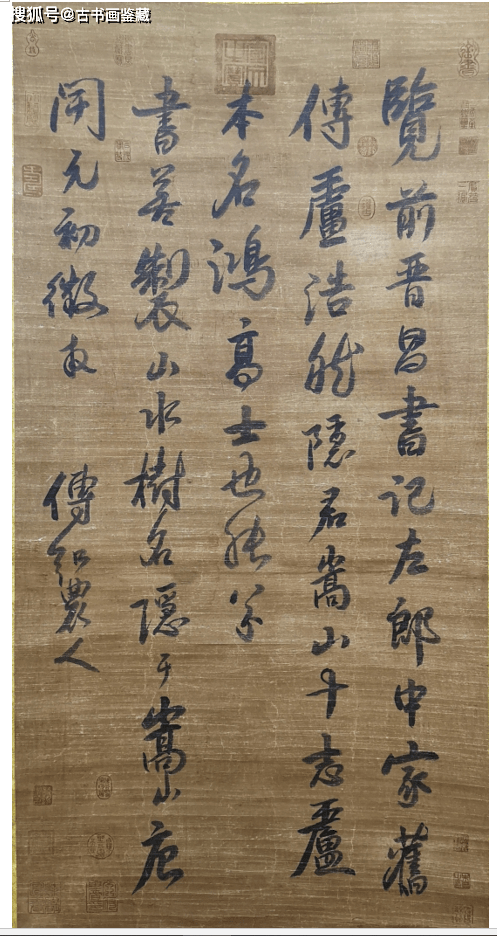 搜狐号@古书画鉴藏
覽前晉昌書記左郎中家舊
傳盧浩然隱君嵩山十志盧
本名鴻高士也能八分
書善製山水樹名隱于嵩山唐
開元初徵拜
傳農人